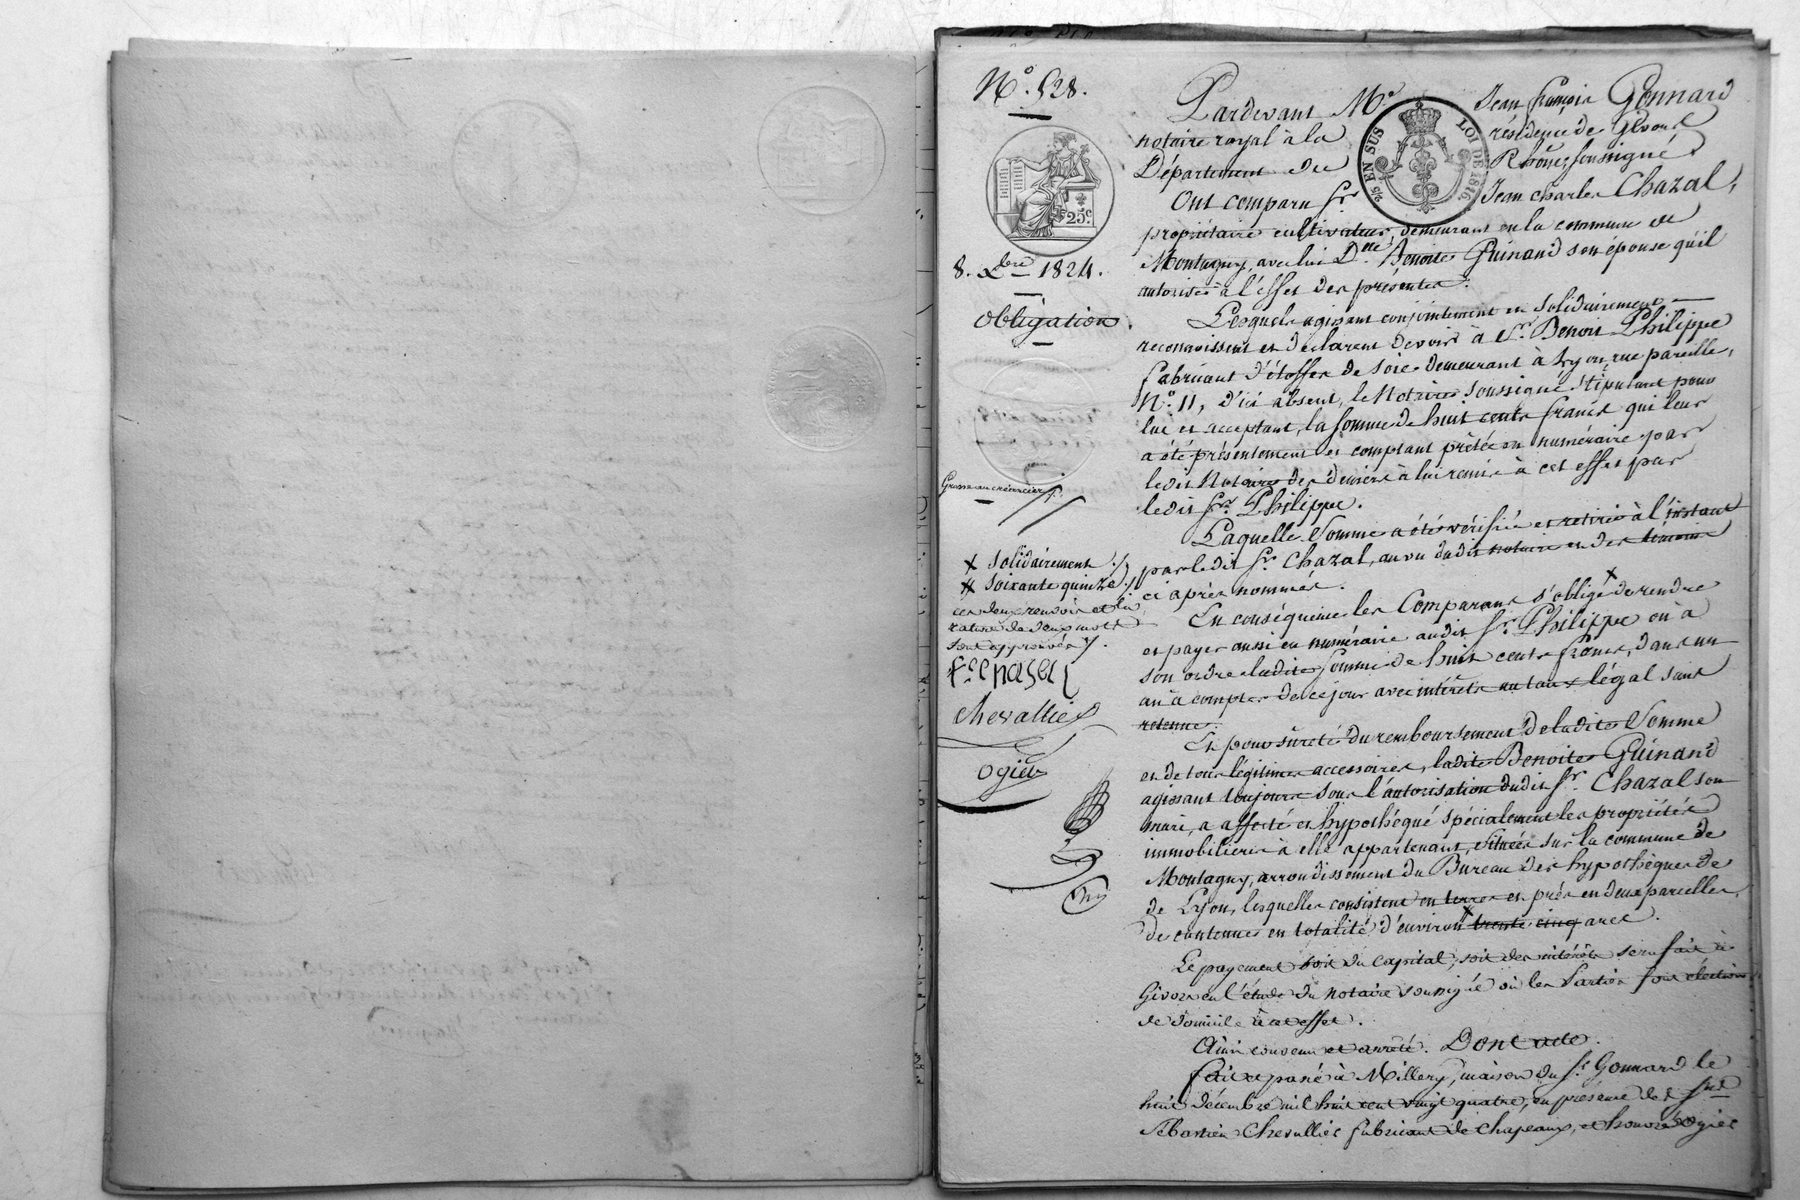 N.o 528.
25c.
8. Xbre 1824.
Obligation.
Grosse au créancier
x Solidairement
# Soixante quinze
ces deux renvois et la
rature de deux mots
sont approuvés
Fs Chazel
Chevallier
Ogier
25 EN SUS LOI DE 1816
Pardevant Me Jean françois Gonnard
notaire royal à la résidence de Givors
Département du Rhône, soussigné
Ont comparu Sr Jean Charles Chazal,
propriétaire cultivateur, demeurant en la commune de
Montagny, avec lui De Benoite Guinand son épouse qu'il
autorise à l'effet des présentes.
Lesquels agissant conjointement et solidairement
reconnaissent et déclarent devoir à Sr. Benoit Philippe
fabricant d'étoffes de soie demeurant à Lyon rue pareille,
N.o 11, d'ici absent, le Notaire soussigné stipulant pour
lui et acceptant, la somme de huit cents francs qui leur
a été présentement et comptant prêtée en numéraire par
ledit Notaire des deniers à lui remis à cet effet par
ledit Sr. Philippe.
Laquelle Somme a été vérifiée et retirée à l'instant
par ledit Sr. Chazal, au vu dudit notaire et des témoins
ci après nommés.
En conséquence les Comparans s'oblige x de rendre
et payer aussi en numéraire audit Sr. Philippe ou à
son ordre ladite Somme de huit cents francs, dans un
an à compter de ce jour avec intérêts au taux légal sans
retenue.
Et pour sûreté du remboursement de ladite Somme
et de tous légitimes accessoires, ladite Benoite Guinand
agissant toujours sous l'autorisation dudit Sr. Chazal son
mari, a affecté et hypothéqué spécialement les propriétés
immobilieres à elle appartenant, situées sur la commune de
Montagny, arrondissement du Bureau des hypothèques de
de Lyon, lesquelles consistent en terres et prés en deux parcelles,
de contenue en totalité d'environ # trente cinq ares.
Le payement soit du capital, soit des intérêts sera fait à
Givors en l'étude du notaire soussigné où les Parties font élection
de domicile à cet effet.
Ainsi convenu et arrêté. Dont acte.
fait et passé à Millery, maison du Sr Gonnard le
huit décembre mil huit cent vingt quatre, en présence de Srs
Sébastien Chevallier fabricant de chapeaux, et honoré Ogier